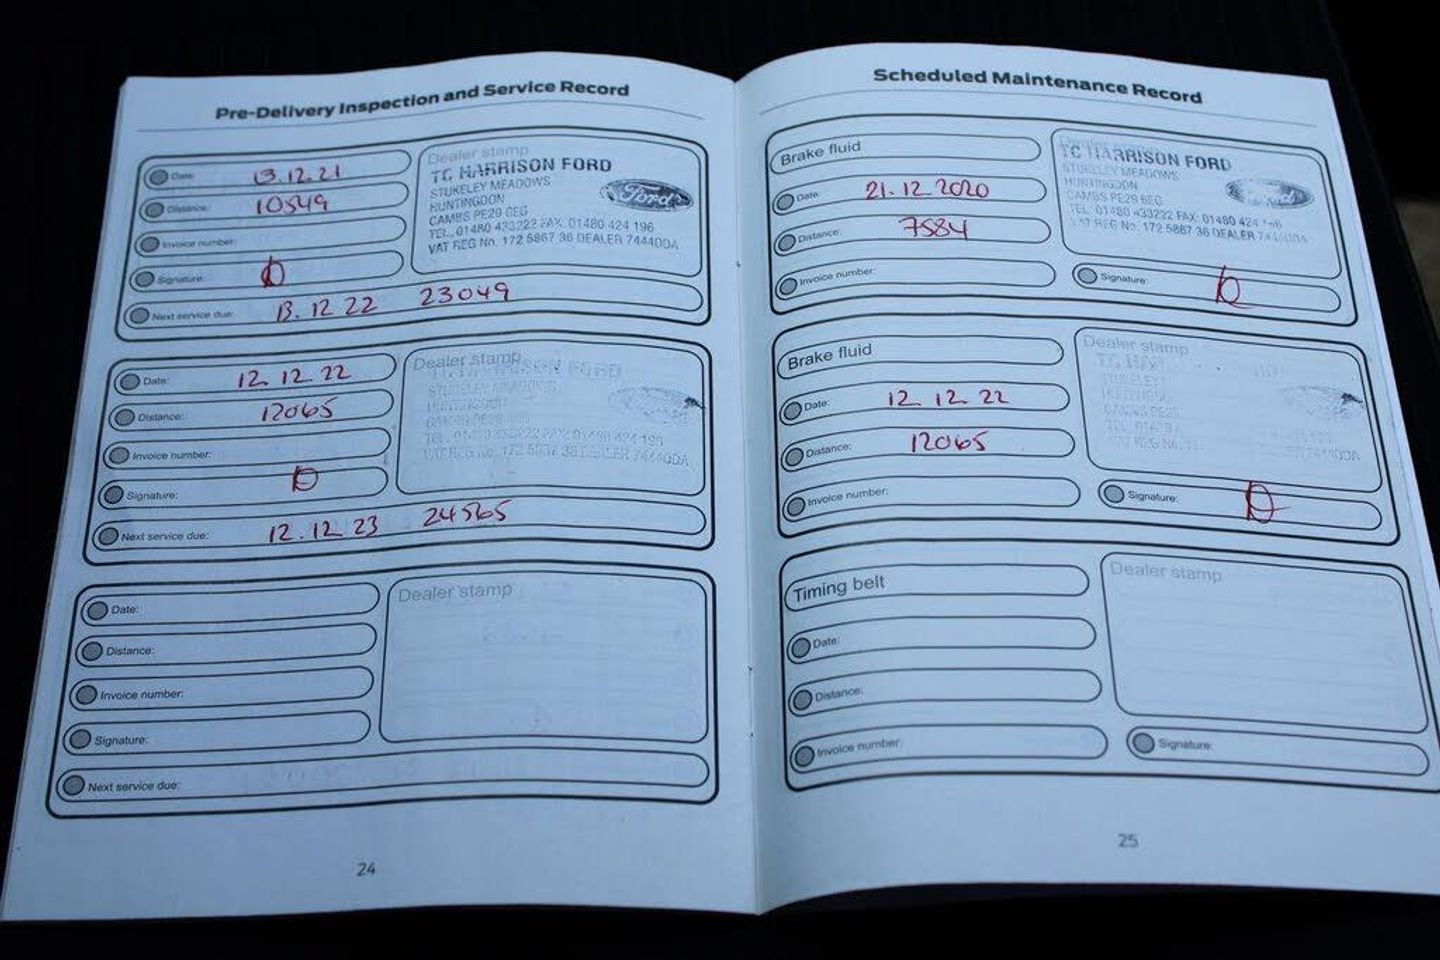 Pre-Delivery Inspection and Service Record
Date: 13.12.21
Distance: 10549
Invoice number:
Signature:
Next service due: 13.12 22 23049
Dealer stamp
TC HARRISON FORD
STUKELEY MEADOWS
HUNTINGDON
CAMBS PE29 6EG
TEL. 01480 433222 FAX: 01480 424 196
VAT REG No. 172 5867 36 DEALER 74440DA
Ford
Date: 12. 12. 22
Distance: 12065
Invoice number:
Signature:
Next service due: 12.12 23 24565
Dealer stamp
TC HARRISON FORD
STUKELEY MEADOWS
HUNTINGDON
CAMBS PE29
TEL. 01480 433222 FAX: 01480 424 196
VAT REG No. 172 5867 36 DEALER 74440DA
Date:
Distance:
Invoice number:
Signature:
Next service due:
Dealer stamp
24
Scheduled Maintenance Record
Brake fluid
Date: 21.12.2020
Distance: 7584
Invoice number:
Dealer stamp
TC HARRISON FORD
STUKELEY MEADOWS
HUNTINGDON
CAMBS PE29 6EG
TEL. 01480 433222 FAX: 01480 424 196
VAT REG No. 172 5867 36 DEALER 74440DA
Ford
Signature:
Brake fluid
Date: 12.12.22
Distance: 12065
Invoice number:
Dealer stamp
TC
CAMBS PE29
VAT REG No. 74440DA
Signature:
Timing belt
Date:
Distance:
Invoice number:
Dealer stamp
Signature:
25